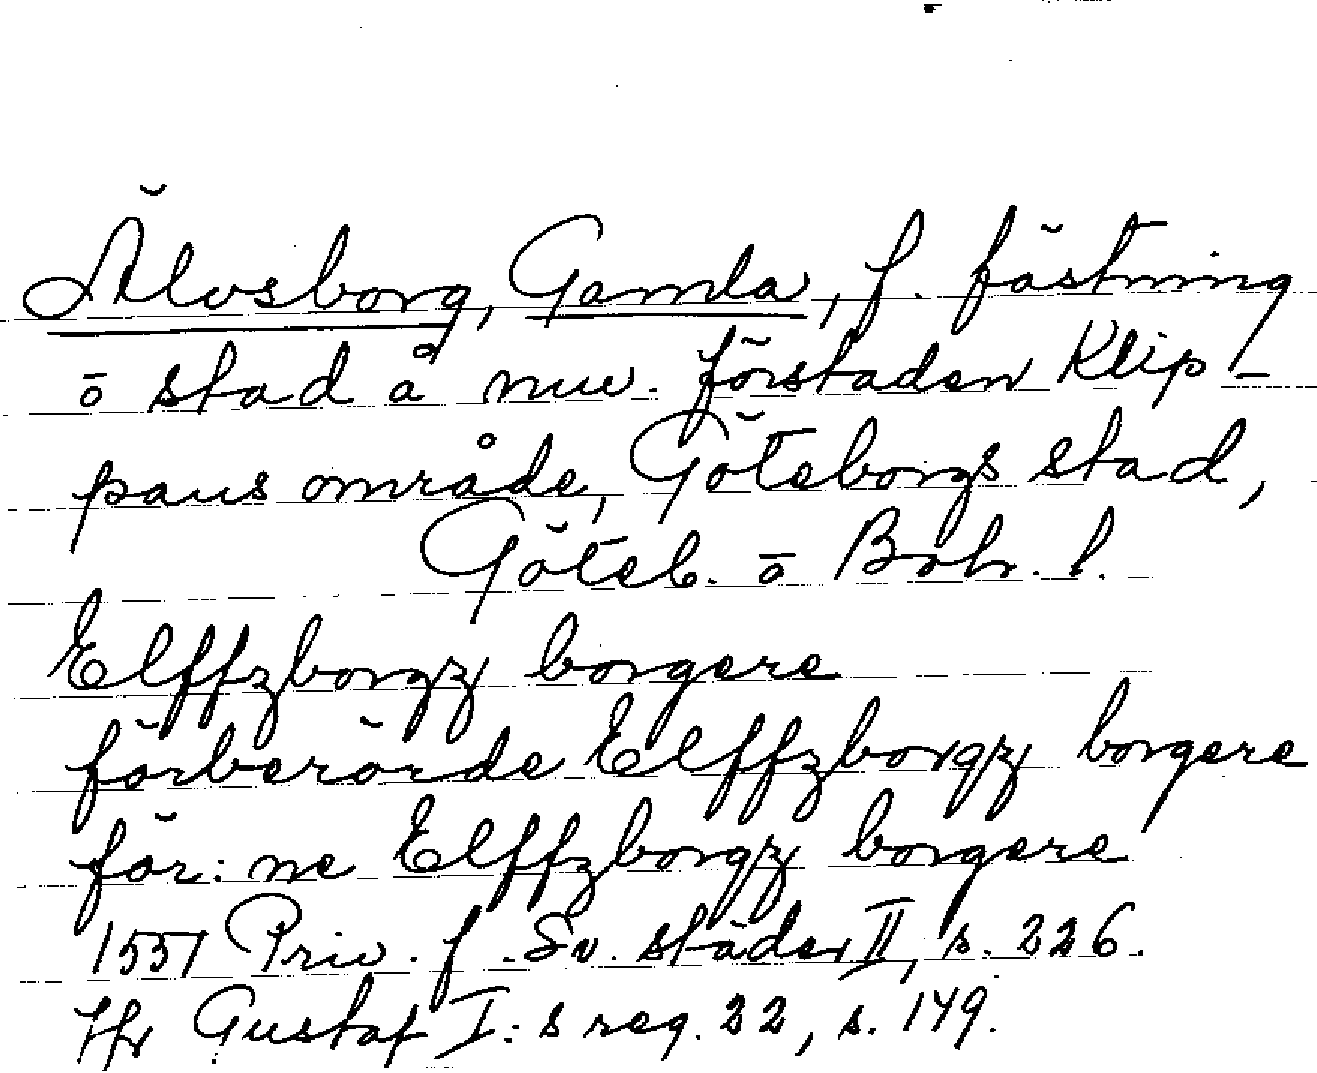 Älvsborg, Gamla, f. fästning
o stad å nuv. förstaden Klip-
pans område, Göteborgs stad,
Göteb. o Boh. l.
Elffzborgz borgere
förberörde Elffzborgz borgere
för:ne Elffzborgz borgere
1551 Priv. f. Sv. städer II, s. 226.
Jfr Gustaf I:s reg. 22, s. 149.